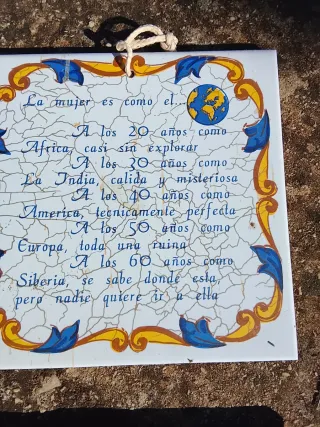 La mujer es como el...
A los 20 años como
Africa, casi sin explorar
A los 30 años como
La India, calida y misteriosa
A los 40 años como
America, tecnicamente perfecta
A los 50 años como
Europa, toda una ruina
A los 60 años como
Siberia, se sabe donde esta,
pero nadie quiere ir a ella